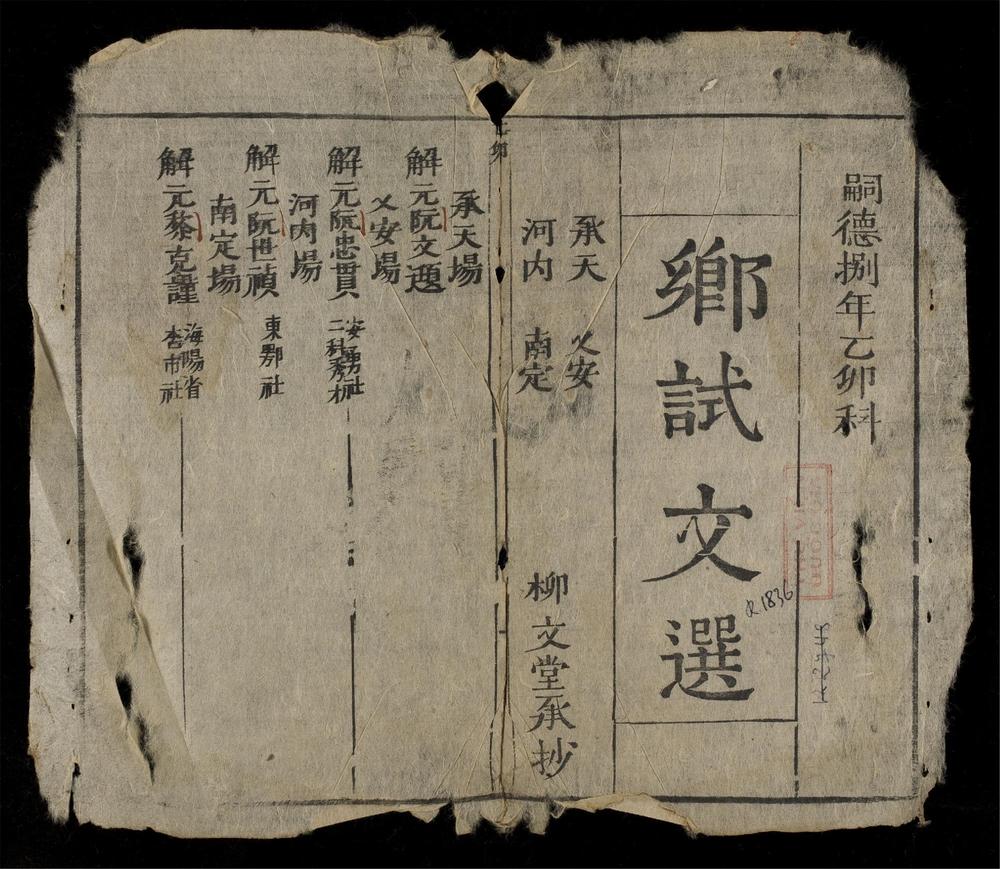 嗣德捌年乙卯科
鄉試文選
R.1836
承天 乂安
河内 南定
柳文堂承抄
乙卯
承天場
解元阮文題
乂安場
解元阮忠貫 安勇社
二科秀才
河内場
解元阮世禎 東鄂社
南定場
解元黎克謹 海陽省
杏市社